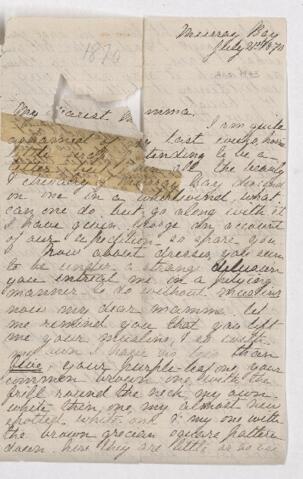 Murray Bay
July 21st 1870
1870
My dearest Mamma.
I am quite
ashamed of my last
to be a
letter all the
I Bay
on me in a whirlwind what
can one do, but go along with it
I have given George an account
of our expedition so spare you
Now about dresses, you seem
to be under a strange delusion
you entreat me in a pitying
manner to do without muslins
now my dear mamma let
me remind you that you left
me your muslins, I so with
my own I have no less than
five, your purple leaf one, your
common brown one, with the
frill round the neck, my own
white thin one, my almost new
spotted white one & my one with
the brown grecian square pattern
down. here they are little or no use